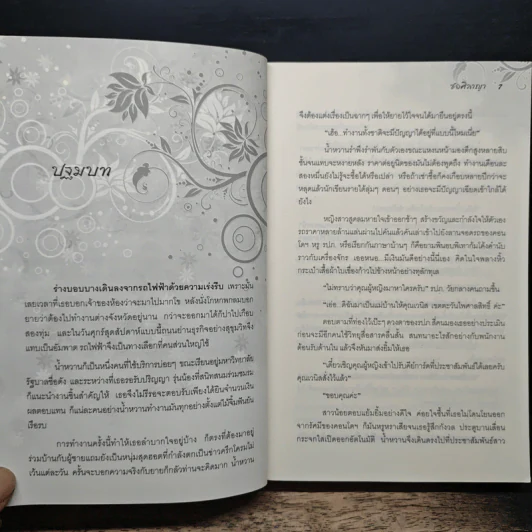 ปฐมบท
ร่างบอบบางเดินลงจากรถไฟฟ้าด้วยความเร่งรีบ เพราะผู้น
เลยเวลาที่เธอบอกเจ้าของห้องว่าจะมาไปมากโข หลังนั่งโกหกตกลงบอก
ยายว่าต้องไปทำงานต่างจังหวัดอยู่นาน กว่าจะออกมาได้ก็ปาไปเกือบ
สองทุ่ม และในวันศุกร์สุดสัปดาห์แบบนี้ถนนย่านธุรกิจอย่างสุขุมวิทจึง
แทบเป็นอัมพาต รถไฟฟ้าจึงเป็นทางเลือกที่คนส่วนใหญ่ใช้
น้ำหวานก็เป็นหนึ่งคนที่ใช้บริการบ่อยๆ ขณะเรียนอยู่มหาวิทยาลัย
รัฐบาลชื่อดัง และระหว่างที่เธอรอรับปริญญา รุ่นน้องที่สนิทสนมร่วมชมรม
ก็แนะนำงานชิ้นสำคัญให้ เธอจึงไม่รีรอจะตอบรับเพียงได้ยินจำนวนเงิน
ผลตอบแทน ก็แน่ละคนอย่างน้ำหวานทำงานมันทุกอย่างตั้งแต่ไม้จิ้มฟันยัน
เรือรบ
การทำงานครั้งนี้ทำให้เธอลำบากใจอยู่บ้าง ก็ตรงที่ต้องมาอยู่
ร่วมบ้านกับผู้ชายแถมยังเป็นหนุ่มสุดฮอตที่กำลังตกเป็นข่าวครึกโครมไม่
เว้นแต่ละวัน ครั้นจะบอกความจริงกับยายก็กลัวท่านจะคิดมาก น้ำหวาน
7
จึงต้องแต่งเรื่องเป็นฉากๆ เพื่อให้ยายไว้ใจจนได้มายืนอยู่ตรงนี้
“เฮ้อ...ทำงานทั้งชาติจะมีปัญญาได้อยู่ที่แบบนี้ไหมเนี่ย”
น้ำหวานรำพึงรำพันกับตัวเองขณะแหงนหน้ามองตึกสูงหลายสิบ
ชั้นจนแทบจะหงายหลัง ราคาอยู่นิดของมันไม่ต้องพูดถึง ทำงานเดือนละ
สองหมื่นยังไม่รู้จะซื้อได้หรือเปล่า หรือถ้าเช่าซื้อก็คงเกือบหลายปีกว่าจะ
หลุดแล้วนักเขียนรายได้ลุ่มๆ ดอนๆ อย่างเธอจะมีปัญญาเฉียดเข้าใกล้ได้
ยังไง
หญิงสาวสูดลมหายใจเข้าออกช้าๆ สร้างขวัญและกำลังใจให้ตัวเอง
รถราคาหลายล้านแล่นผ่านไปคันแล้วคันเล่าเข้าไปยังลานจอดรถของคอน
โดฯ หรู รปภ. หรือเรียกกันภาษาบ้านๆ ก็คือยามพินอบพิเทาก้มโค้งคำนับ
ราวกับเครื่องจักร เธอหนอ...มีเงินมันดีอย่างนี้นี่เอง คิดในใจพลางหิ้ว
กระเป๋าเสื้อผ้าใบเขื่องก้าวไปข้างหน้าอย่างทุลักทุเล
“ไม่ทราบว่าคุณผู้หญิงมาหาใครครับ” รปภ. วัยกลางคนถามขึ้น
“เอ่อ...ดิฉันมาเป็นแม่บ้านให้คุณเวนิส เขตตะวันไพศาลสิทธิ์ ค่ะ”
ตอบตามที่ท่องไว้เป๊ะๆ ดวงตาของรปภ.สี่คนมองเธออย่างประเมิน
ก่อนจะมีอีกคนใช้วิทยุสื่อสารคลื่นสั้น สนทนาอะไรสักอย่างกับพนักงาน
ต้อนรับด้านใน แล้วจึงหันมาส่งยิ้มให้เธอ
“เดี๋ยวเชิญคุณผู้หญิงเข้าไปรับคีย์การ์ดที่ประชาสัมพันธ์ได้เลยครับ
คุณเวนิสสั่งไว้แล้ว”
“ขอบคุณค่ะ”
สาวน้อยตอบแย้มยิ้มอย่างดีใจ คอยใจชื้นที่เธอไม่โดนโยนออก
จากรัศมีของคอนโดฯ ก็มันหรูหราเสียจนเธอรู้สึกกังวล ประตูบานเลื่อน
กระจกใสเปิดออกอัตโนมัติ น้ำหวานจึงเดินตรงไปที่ประชาสัมพันธ์สาว